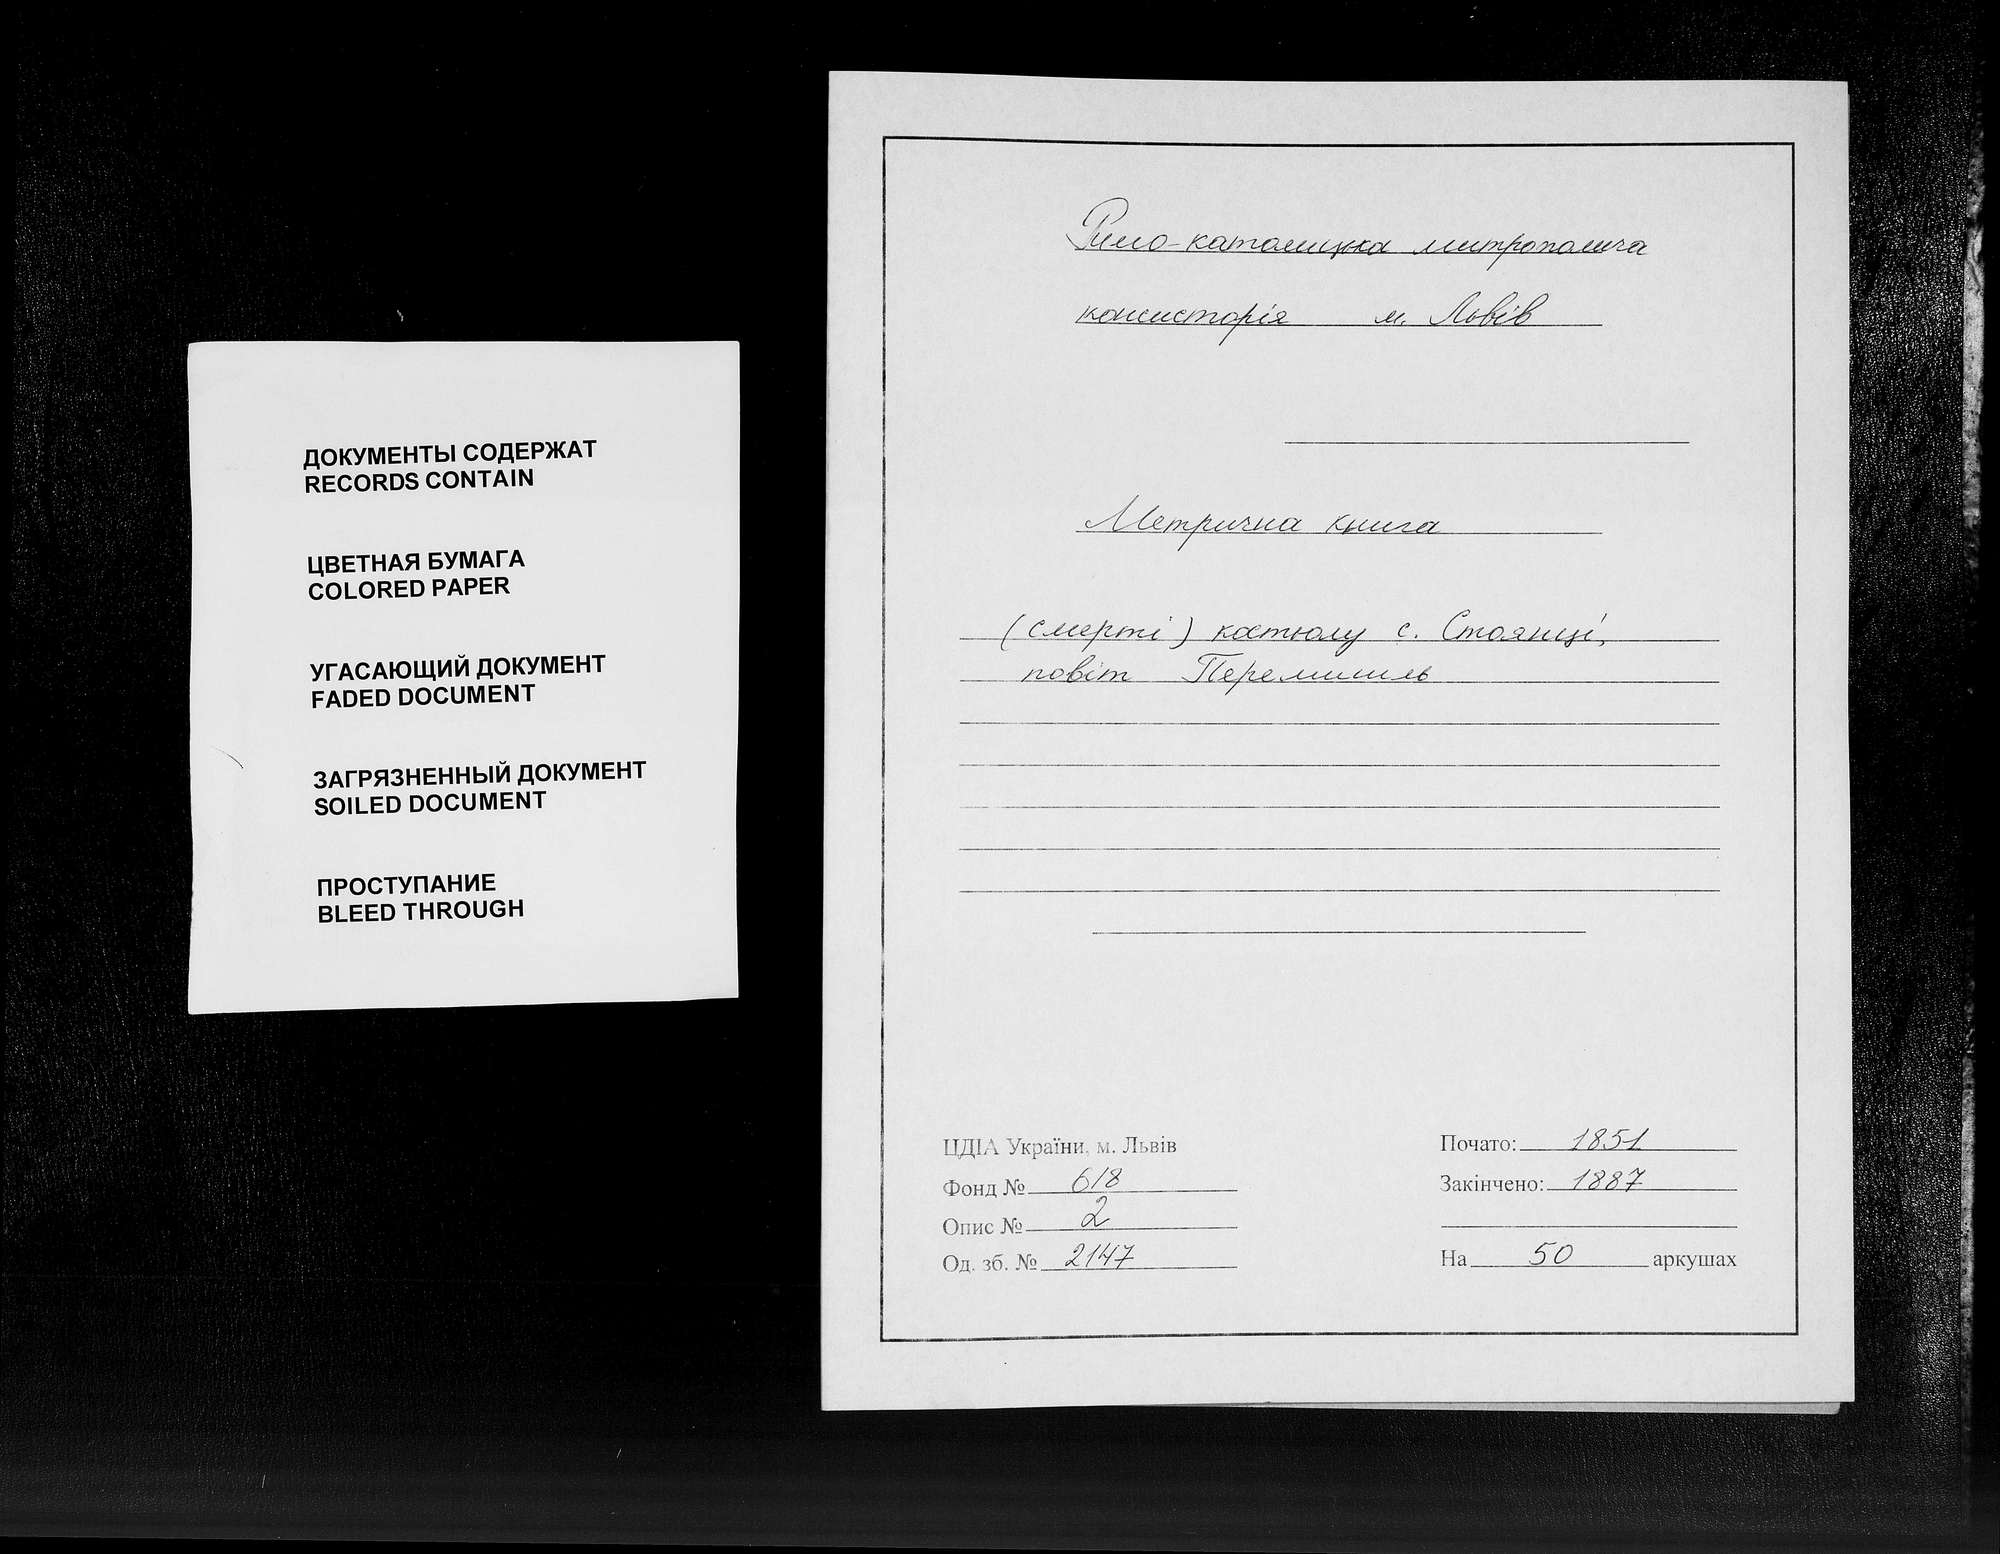 ДОКУМЕНТЫ СОДЕРЖАТ
RECORDS CONTAIN
ЦВЕТНАЯ БУМАГА
COLORED PAPER
УГАСАЮЩИЙ ДОКУМЕНТ
FADED DOCUMENT
ЗАГРЯЗНЕННЫЙ ДОКУМЕНТ
SOILED DOCUMENT
ПРОСТУПАНИЕ
BLEED THROUGH
Римо-католицька митрополича
консисторія м. Львів
Метрична книга
(смерті) костьолу с. Стоянці,
повіт Перемишль
ЦДІА України, м. Львів
Фонд № 618
Опис № 2
Од. зб. № 2147
Почато: 1851
Закінчено: 1887
На 50 аркушах